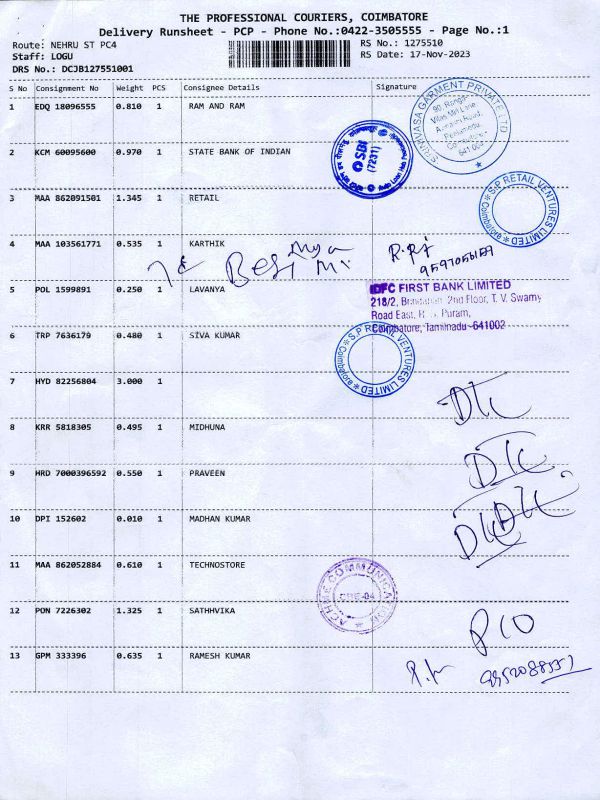 THE PROFESSIONAL COURIERS, COIMBATORE
Delivery Runsheet - PCP - Phone No.:0422-3505555 - Page No.:1
Route: NEHRU ST PC4 RS No.: 1275510
Staff: LOGU RS Date: 17-Nov-2023
DRS No.: DCJB127551001
S No Consignment No Weight PCS Consignee Details Signature
1 EDQ 18096555 0.810 1 RAM AND RAM
SRINIVASA GARMENT PRIVATE LTD
641 004
2 KCM 60095600 0.970 1 STATE BANK OF INDIAN
SBI
(7231)
3 MAA 862091501 1.345 1 RETAIL
S.P RETAIL VENTURES LIMITED
Coimbatore
4 MAA 103561771 0.535 1 KARTHIK
9597056159
5 POL 1599891 0.250 1 LAVANYA
IDFC FIRST BANK LIMITED
218/2, 2nd Floor, T. V. Swamy
Road East, Puram,
Coimbatore, Tamilnadu-641002
6 TRP 7636179 0.480 1 SIVA KUMAR
S.P RETAIL VENTURES LIMITED
Coimbatore
7 HYD 82256804 3.000 1
DLC
8 KRR 5818305 0.495 1 MIDHUNA
DLC
9 HRD 7000396592 0.550 1 PRAVEEN
DLC
10 DPI 152602 0.010 1 MADHAN KUMAR
DLC
11 MAA 862052884 0.610 1 TECHNOSTORE
ACHME COMMUNICATION
CBE-04
12 PON 7226302 1.325 1 SATHHVIKA
P10
13 GPM 333396 0.635 1 RAMESH KUMAR